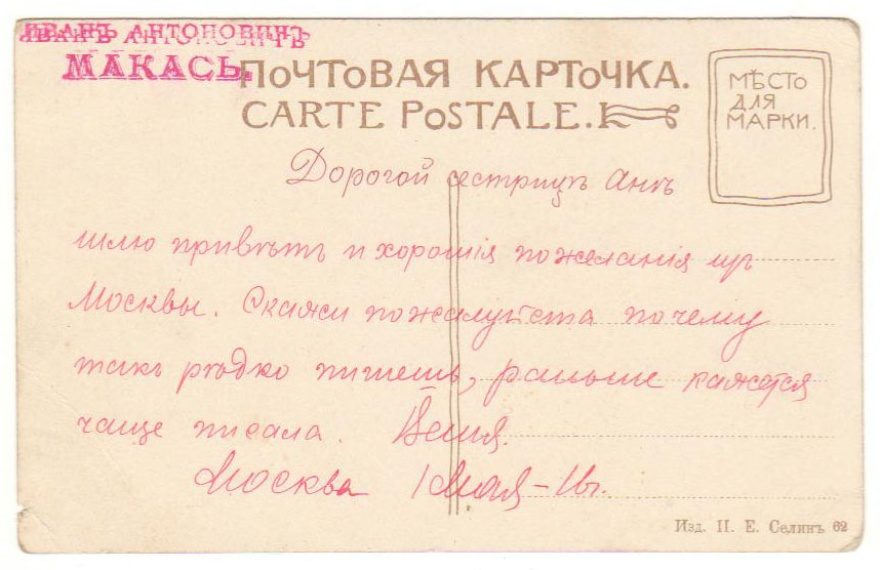 ИВАНЪ АНТОНОВИЧЪ
МАКАСЬ.
ПОЧТОВАЯ КАРТОЧКА.
CARTE POSTALE.
МѢСТО
ДЛЯ
МАРКИ.
Дорогой сестрицѣ Анѣ
шлю привѣтъ и хорошія пожеланія изъ
Москвы. Скажи пожалуйста почему
такъ рѣдко пишешь, раньше кажется
чаще писала.
Москва 1 Мая - 16г.
Изд. П. Е. Селинъ 62